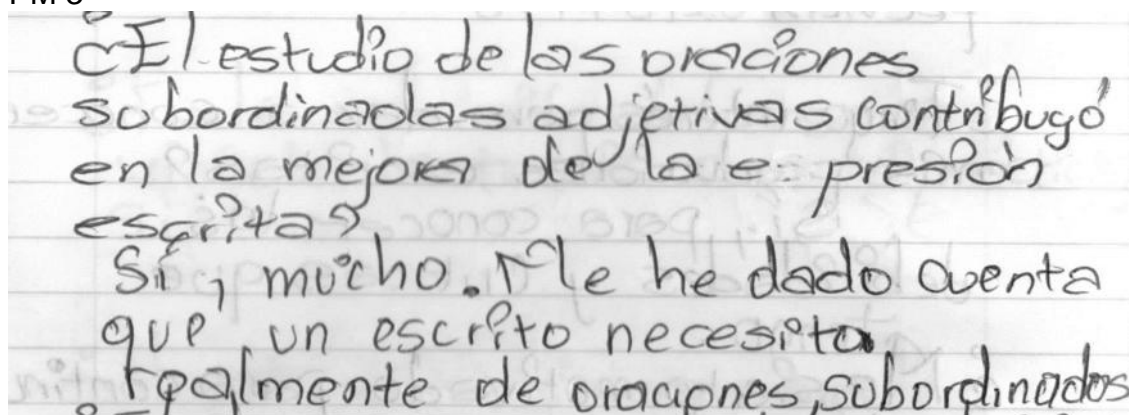 ¿El estudio de las oraciones
subordinadas adjetivas contribuyó
en la mejora de la e presión
escrita?
Sí, mucho. Me he dado cuenta
que un escrito necesita
realmente de oraciones subordinadas